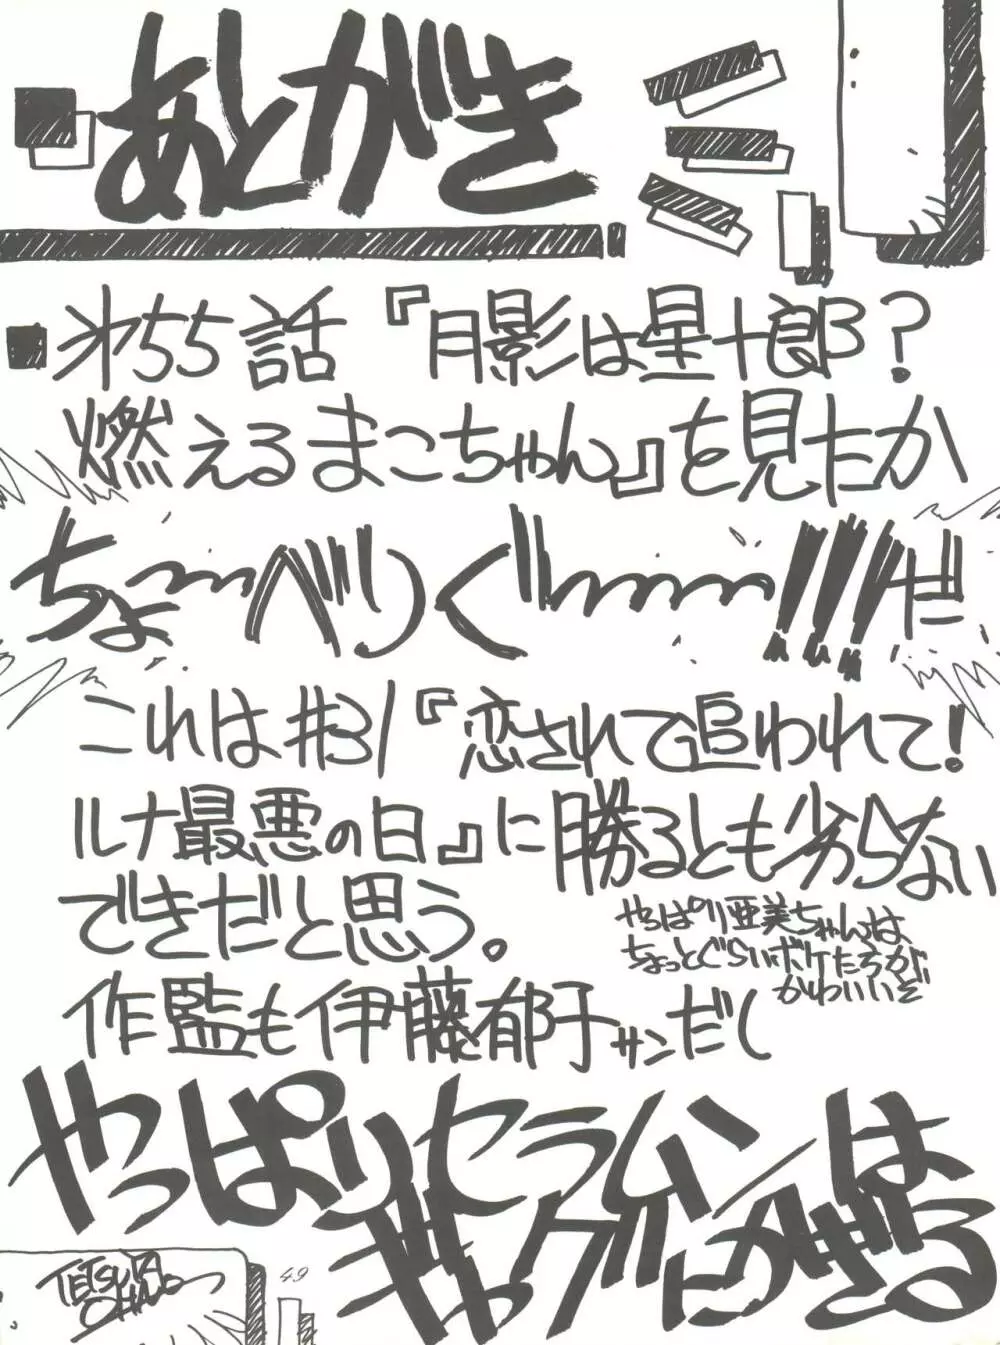 あとがき
■ 第55話『月影は星十郎?
燃えるまこちゃん』を見たか
ちょ〜〜べりぐ〜〜〜!!!だ
これは#31『恋されて追われて!
ルナ最悪の日』に勝るとも劣らない
できだと思う。
やっぱり亜美ちゃんは、
ちょっとぐらいボケたろうが、
かわいいぞ
作監も伊藤郁子サンだし
やっぱりセラムンは
ギャグにかぎる
TETSUYA
49